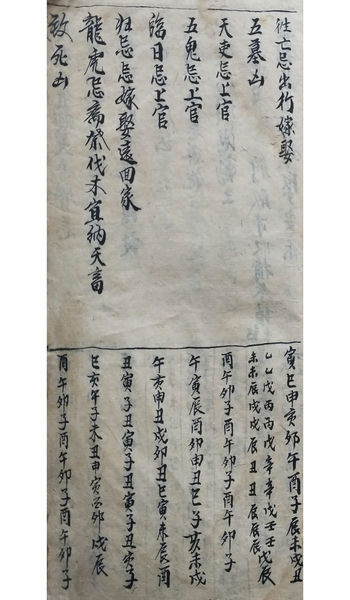 往亡忌出行嫁娶
五墓凶
天吏忌上官
五鬼忌上官
臨日忌上官
归忌忌嫁娶遠回家
龍虎忌齋祭伐木宜納天畜
致死凶
寅巳申亥卯午酉子辰未戌丑
乙乙戊丙丙戊辛辛戊壬壬戊
未未辰戌戌辰丑丑辰辰辰辰
酉午卯子酉午卯子酉午卯子
午寅辰酉卯申丑巳子亥未戌
午亥申丑戌卯丑巳寅未辰酉
丑寅子丑寅子丑寅子丑寅子
巳亥午子未丑申寅酉卯戌辰
酉午卯子酉午卯子酉午卯子